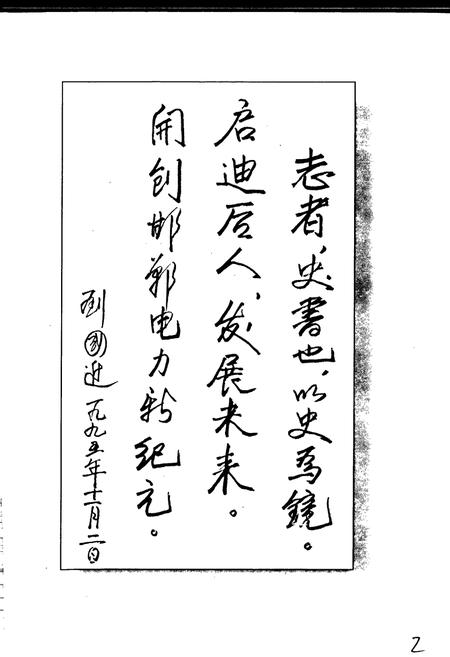 志者，史書也，以史為鏡。
启迪后人，发展未来。
開创邯郸电力新纪元。
刘国进 一九九五年十一月二日
2